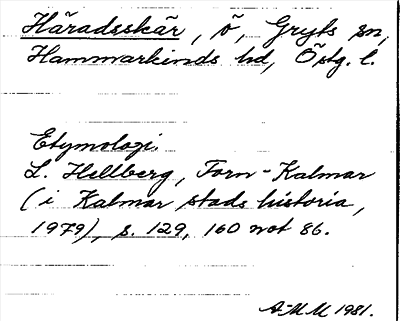 Häradsskär, ö, Gryts sn,
Hammarkinds hd, Östg. l.
Etymologi.
L. Hellberg, Forn-Kalmar
(i Kalmar stads historia,
1979), s. 129, 160 not 86.
A-MM 1981.